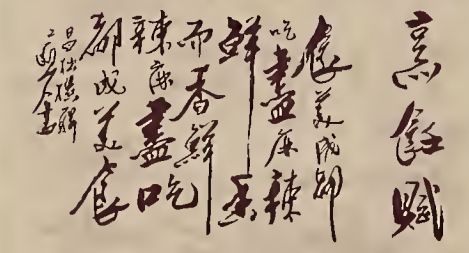 烹飪賦
食美成都
吃盡麻辣
鮮香
而香鮮
辣麻盡吃
都成美食